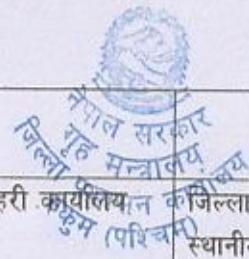 नेपाल सरकार
गृह मन्त्रालय
जिल्ला प्रशासन कार्यालय
रुकुम (पश्चिम)
हरी कार्यालय
जिल्ला
स्थानीय